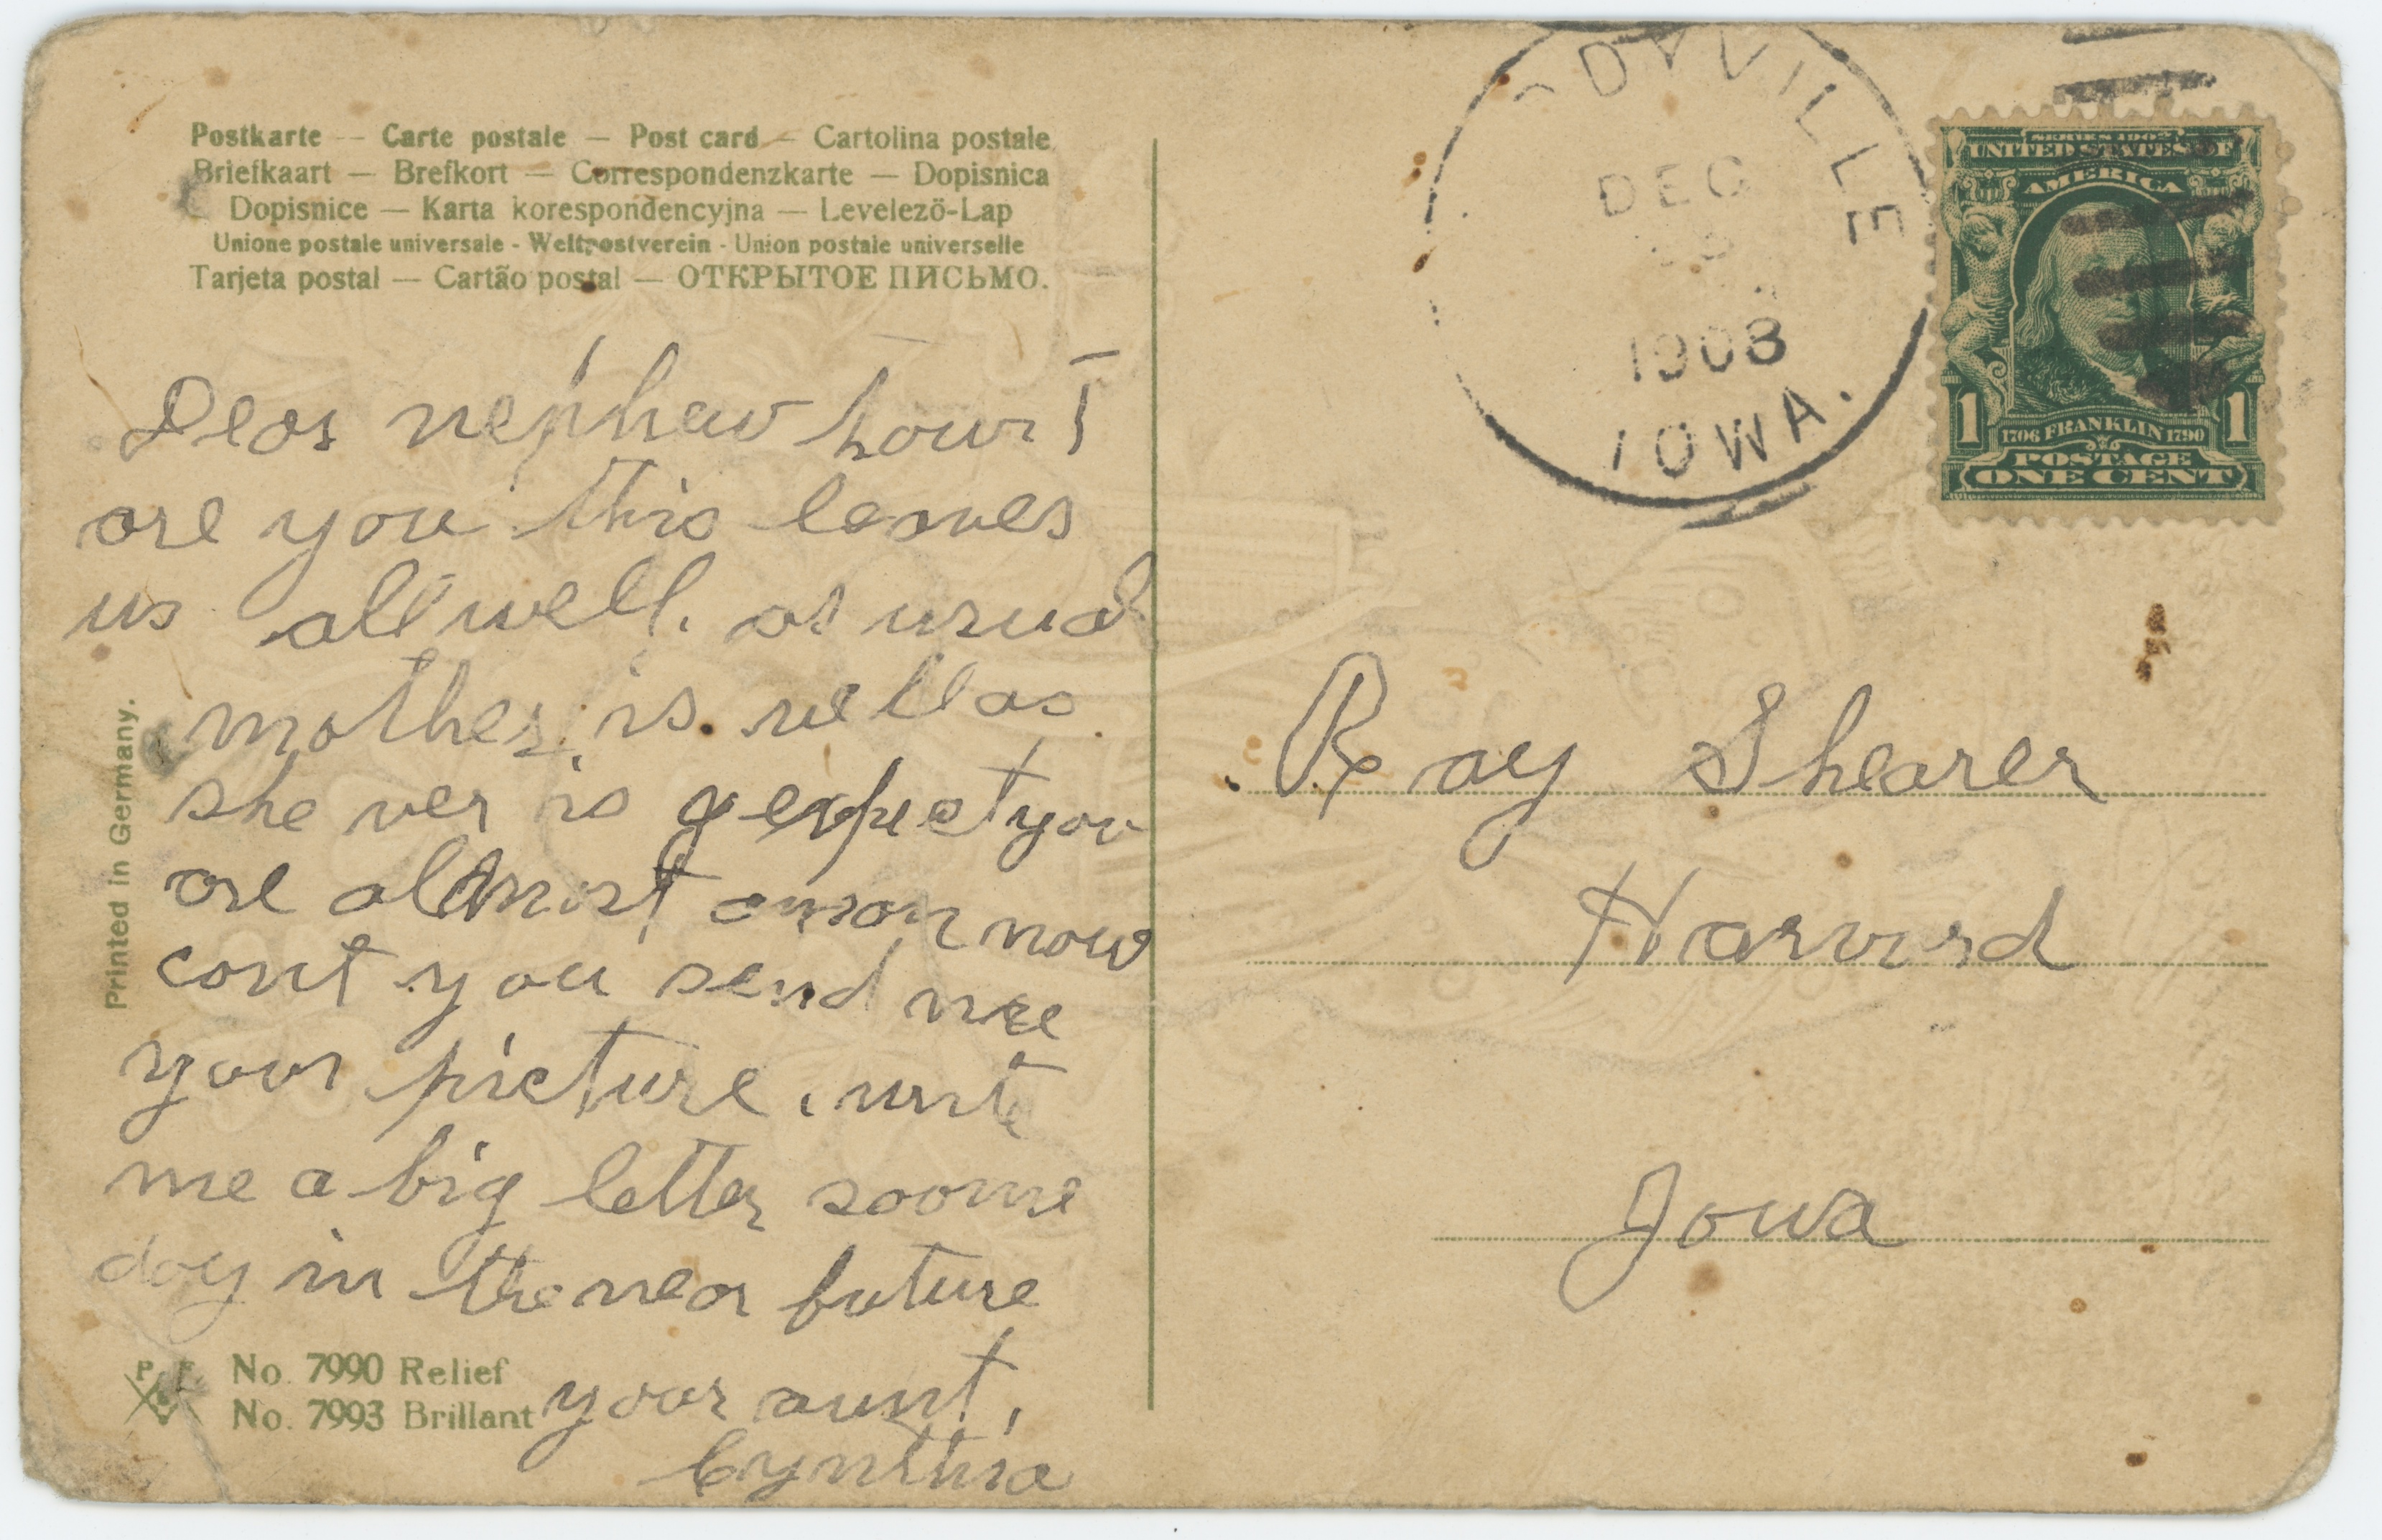 Postkarte — Carte postale — Post card — Cartolina postale
Briefkaart — Brefkort — Correspondenzkarte — Dopisnica
Dopisnice — Karta korespondencyjna — Levelezö-Lap
Unione postale universale - Weltpostverein - Union postale universelle
Tarjeta postal — Cartão postal — ОТКРЫТОЕ ПИСЬМО.
Dear nephew how
are you this leaves
us all well. as usual
mother is well as
she ver is expect you
are almost a man now
cant you send me
your picture. write
me a big letter soome
day in the near future
your aunt,
Cynthia
Printed in Germany.
P. F.
No. 7990 Relief
No. 7993 Brillant
DYVILLE
DEC
1908
IOWA.
SERIES 1902
UNITED STATES OF
AMERICA
1 1
1706 FRANKLIN 1790
POSTAGE
ONE CENT
Ray Shearer
Harvard
Iowa